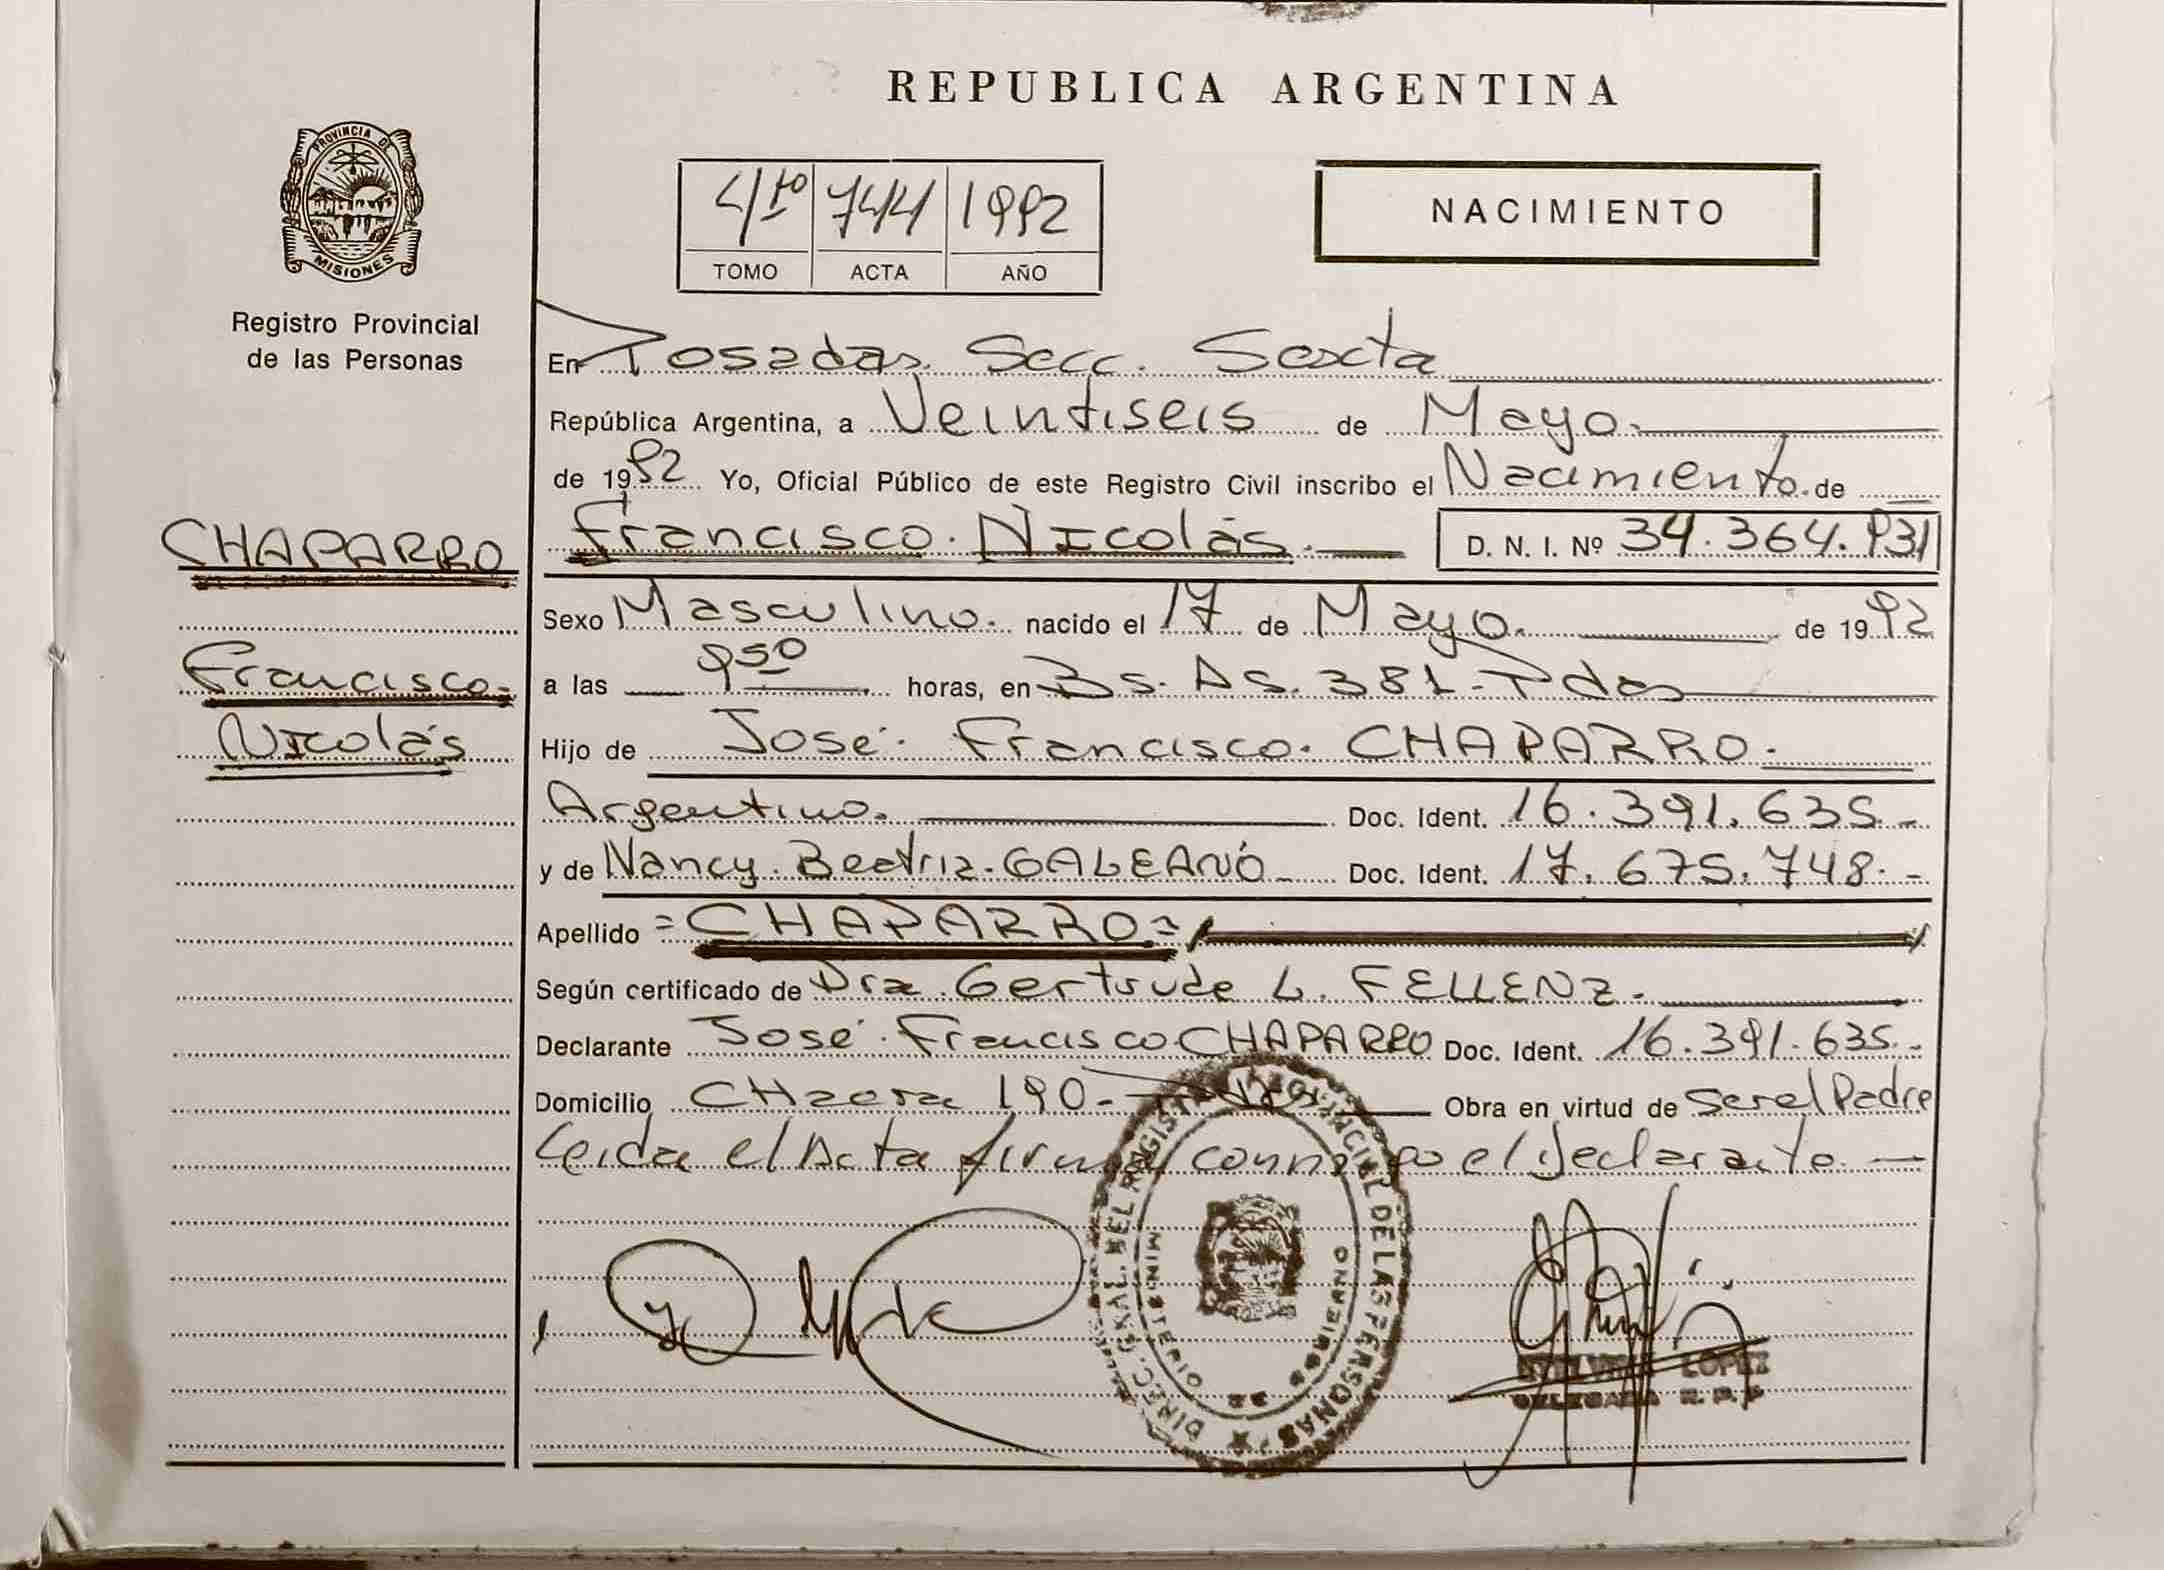 REPUBLICA ARGENTINA
PROVINCIA DE
MISIONES
Registro Provincial
de las Personas
4to 744 1992
TOMO ACTA AÑO
NACIMIENTO
En Posadas Secc. Sexta
República Argentina, a Veintiseis de Mayo.
de 1992 Yo, Oficial Público de este Registro Civil inscribo el Nacimiento. de
CHAPARRO
Francisco. Nicolás. D. N. I. Nº 34.364.931
Sexo Masculino. nacido el 17 de Mayo. de 1992
Francisco.
a las 9 50 horas, en Bs. As. 381. Pdas
Nicolás
Hijo de José. Francisco. CHAPARRO.
Argentino. Doc. Ident. 16.391.635.-
y de Nancy. Beatriz. GALEANO Doc. Ident. 17.675.748.-
Apellido =CHAPARRO=
Según certificado de Dra. Gertrude L. FELLENZ.
Declarante José. Francisco CHAPARRO Doc. Ident. 16.391.635.-
Domicilio CHacra 190. Obra en virtud de Ser el Padre
Leida el Acta firma conmigo el Declarante.
DIREC. GRAL. DEL REGISTRO PROVINCIAL DE LAS PERSONAS
MINISTERIO DE GOBIERNO
LOPEZ
DELEGADA R. P. P.